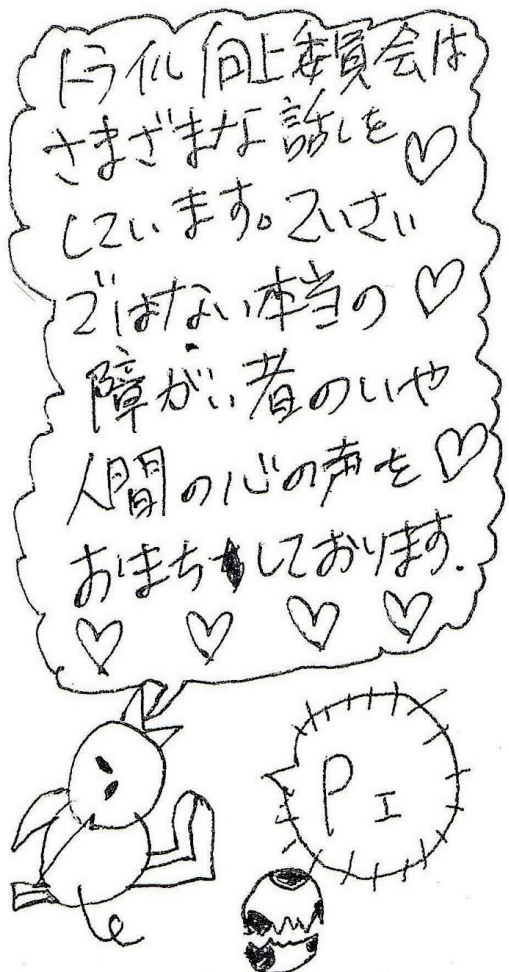 トライル向上委員会は
さまざまな話しを
しています。ていさい
ではない本当の
障がい者のいや
人間の心の声を
おまちしております.
PI